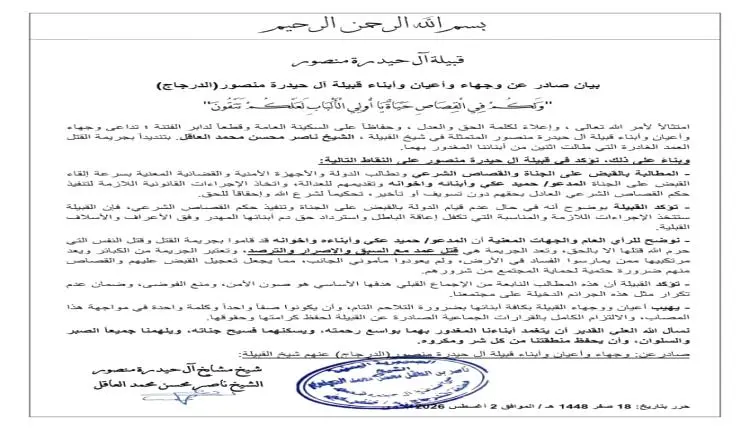 بسم الله الرحمن الرحيم
قبيلة آل حيدرة منصور
بيان صادر عن وجهاء وأعيان وأبناء قبيلة آل حيدرة منصور (الدرجاج)
"وَلَكُمْ فِي الْقِصَاصِ حَيَاةٌ يَا أُولِي الْأَلْبَابِ لَعَلَّكُمْ تَتَّقُونَ"
امتثالاً لأمر الله تعالى ، وإعلاءً لكلمة الحق والعدل ، وحفاظاً على السكينة العامة وقطعاً لدابر الفتنة ؛ تداعى وجهاء
وأعيان وأبناء قبيلة آل حيدرة منصور المتمثلة في شيخ القبيلة ، الشيخ ناصر محسن محمد العاقل. بتنديداً بجريمة القتل
العمد الغادرة التي طالت اثنين من أبنائنا المغدور بهما.
وبناءً على ذلك، تؤكد في قبيلة آل حيدرة منصور على النقاط التالية:
- المطالبة بالقبض على الجناة والقصاص الشرعي ونطالب الدولة والأجهزة الأمنية والقضائية المعنية بسرعة إلقاء
القبض على الجناة المدعو/ حميد عكي وأبنائه واخوانه وتقديمهم للعدالة، واتخاذ الإجراءات القانونية اللازمة لتنفيذ
حكم القصاص الشرعي العادل بحقهم دون تسويف أو تأخير، تحكيماً لشرع الله وإحقاقاً للحق.
- تؤكد القبيلة بوضوح أنه في حال عدم قيام الدولة بالقبض على الجناة وتنفيذ حكم القصاص الشرعي، فإن القبيلة
ستتخذ الإجراءات اللازمة والمناسبة التي تكفل إعاقة الباطل واسترداد حق دم أبنائها المهدر وفق الأعراف والأسلاف
القبلية.
- نوضح للرأي العام والجهات المعنية أن المدعو/ حميد عكي وأبناءه واخوانه قد قاموا بجريمة القتل وقتل النفس التي
حرم الله قتلها الا بالحق، وتعد الجريمة هي قتل عمد مع السبق والاصرار والترصد، وتعتبر الجريمة من الكبائر ويعد
مرتكبيها ممن يمارسوا الفساد في الأرض، ولم يعودوا مأموني الجانب، مما يجعل تعجيل القبض عليهم والقصاص
منهم ضرورة حتمية لحماية المجتمع من شرورهم.
- تؤكد القبيلة أن هذه المطالب النابعة من الإجماع القبلي هدفها الأساسي هو صون الأمن، ومنع الفوضى، وضمان عدم
تكرار مثل هذه الجرائم الدخيلة على مجتمعنا.
- يهيب أعيان ووجهاء القبيلة بكافة أبنائها بضرورة التلاحم التام، وأن يكونوا صفاً واحداً وكلمة واحدة في مواجهة هذا
المصاب، والالتزام الكامل بالقرارات الجماعية الصادرة عن القبيلة لحفظ كرامتها وحقوقها.
نسأل الله العلي القدير أن يتغمد أبناءنا المغدور بهما بواسع رحمته، ويسكنهما فسيح جناته، ويلهمنا جميعاً الصبر
والسلوان، وأن يحفظ منطقتنا من كل شر ومكروه.
صادر عن: وجهاء وأعيان وأبناء قبيلة آل حيدرة منصور (الدرجاج) عنهم شيخ القبيلة:
شيخ مشايخ آل حيدرة منصور
الشيخ ناصر محسن محمد العاقل
حرر بتاريخ: 18 صفر 1448 هـ / الموافق 2 أغسطس 2026